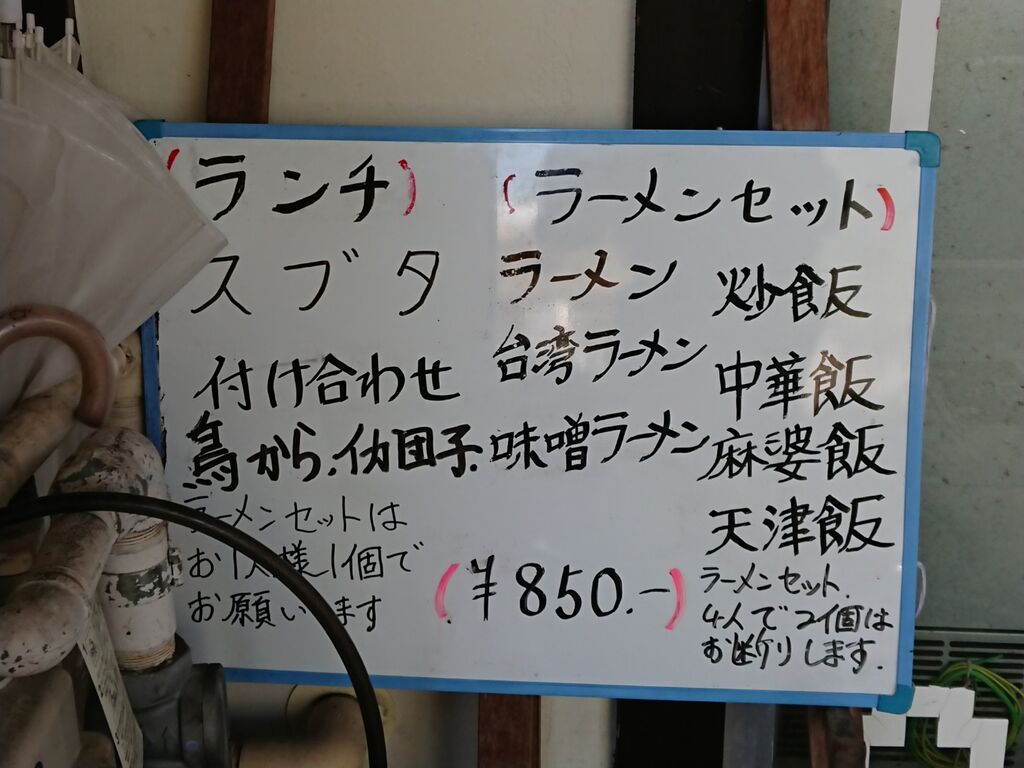 (ランチ)
スブタ
付け合わせ
鳥から、イカ団子、
ラーメンセットは
お1人様1個で
お願いします
(ラーメンセット)
ラーメン
台湾ラーメン
味噌ラーメン
炒飯
中華飯
麻婆飯
天津飯
(¥850.-)
ラーメンセット、
4人で2個は
お断りします.